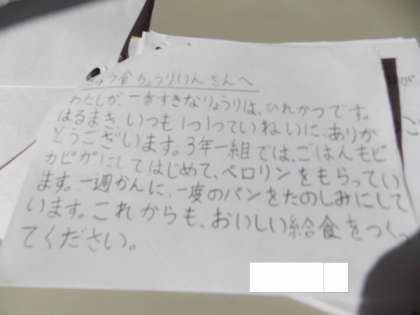 きゅう食ちょうりいんさんへ
わたしが、一番すきなりょうりは、ひれかつです。
はるまき、いつも1つ1つていねいに、ありが
とうございます。3年一組では、ごはんもピ
カピカにしてはじめて、ペロリンをもらってい
ます。一週かんに、一度のパンをたのしみにして
います。これからも、おいしい給食をつくっ
てください。